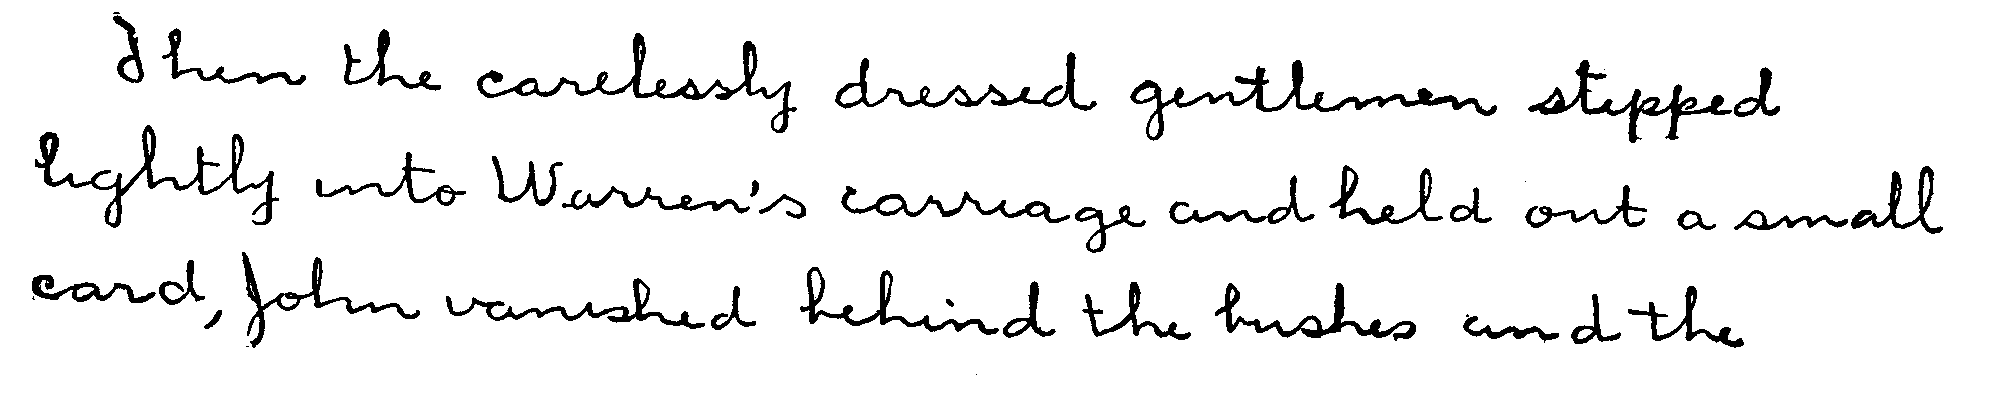 Then the carelessly dressed gentlemen stepped
lightly into Warren's carriage and held out a small
card, John vanished behind the bushes and the